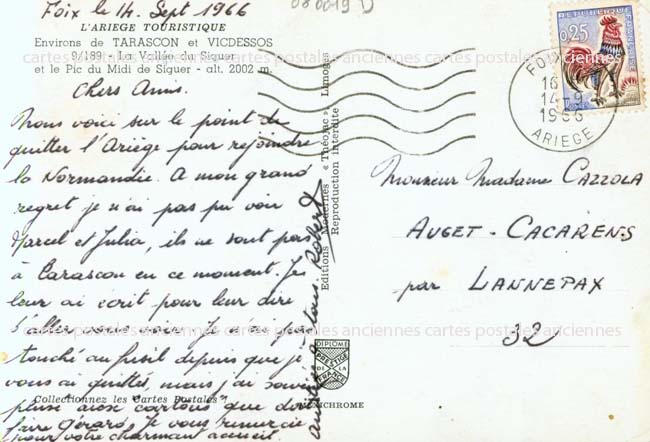 Foix le 14. Sept 1966
L'ARIEGE TOURISTIQUE
Environs de TARASCON et VICDESSOS
9/189 - La Vallée du Siguer
et le Pic du Midi de Siguer - alt. 2002 m.
Chers Amis.
Nous voici sur le point de
quitter l'Ariège pour rejoindre
la Normandie. A mon grand
regret je n'ai pas pu voir
Marcel et Julia, ils ne sont pas
à Tarascon en ce moment. Je
leur ai écrit pour leur dire
d'aller vous voir. Je n'ai pas
touché au fusil depuis que je
vous ai quittés, mais j'ai
aux cartons que doit
faire Gérard. Je vous remercie
pour votre charmant accueil.
Robert
Collectionnez les Cartes Postales
Editions Modernes « Théojac » Limoges
Reproduction interdite
DIPLOME
PRESTIGE
DE LA
FRANCE
080019 D
REPUBLIQUE
0,25
FOIX
16
14-9
1966
ARIEGE
Monsieur Madame CAZZOLA
AUGET-CACARENS
par LANNEPAX
32
cartes postales anciennes cartes postales anciennes cartes postales
cartes postales anciennes cartes postales anciennes cartes postales